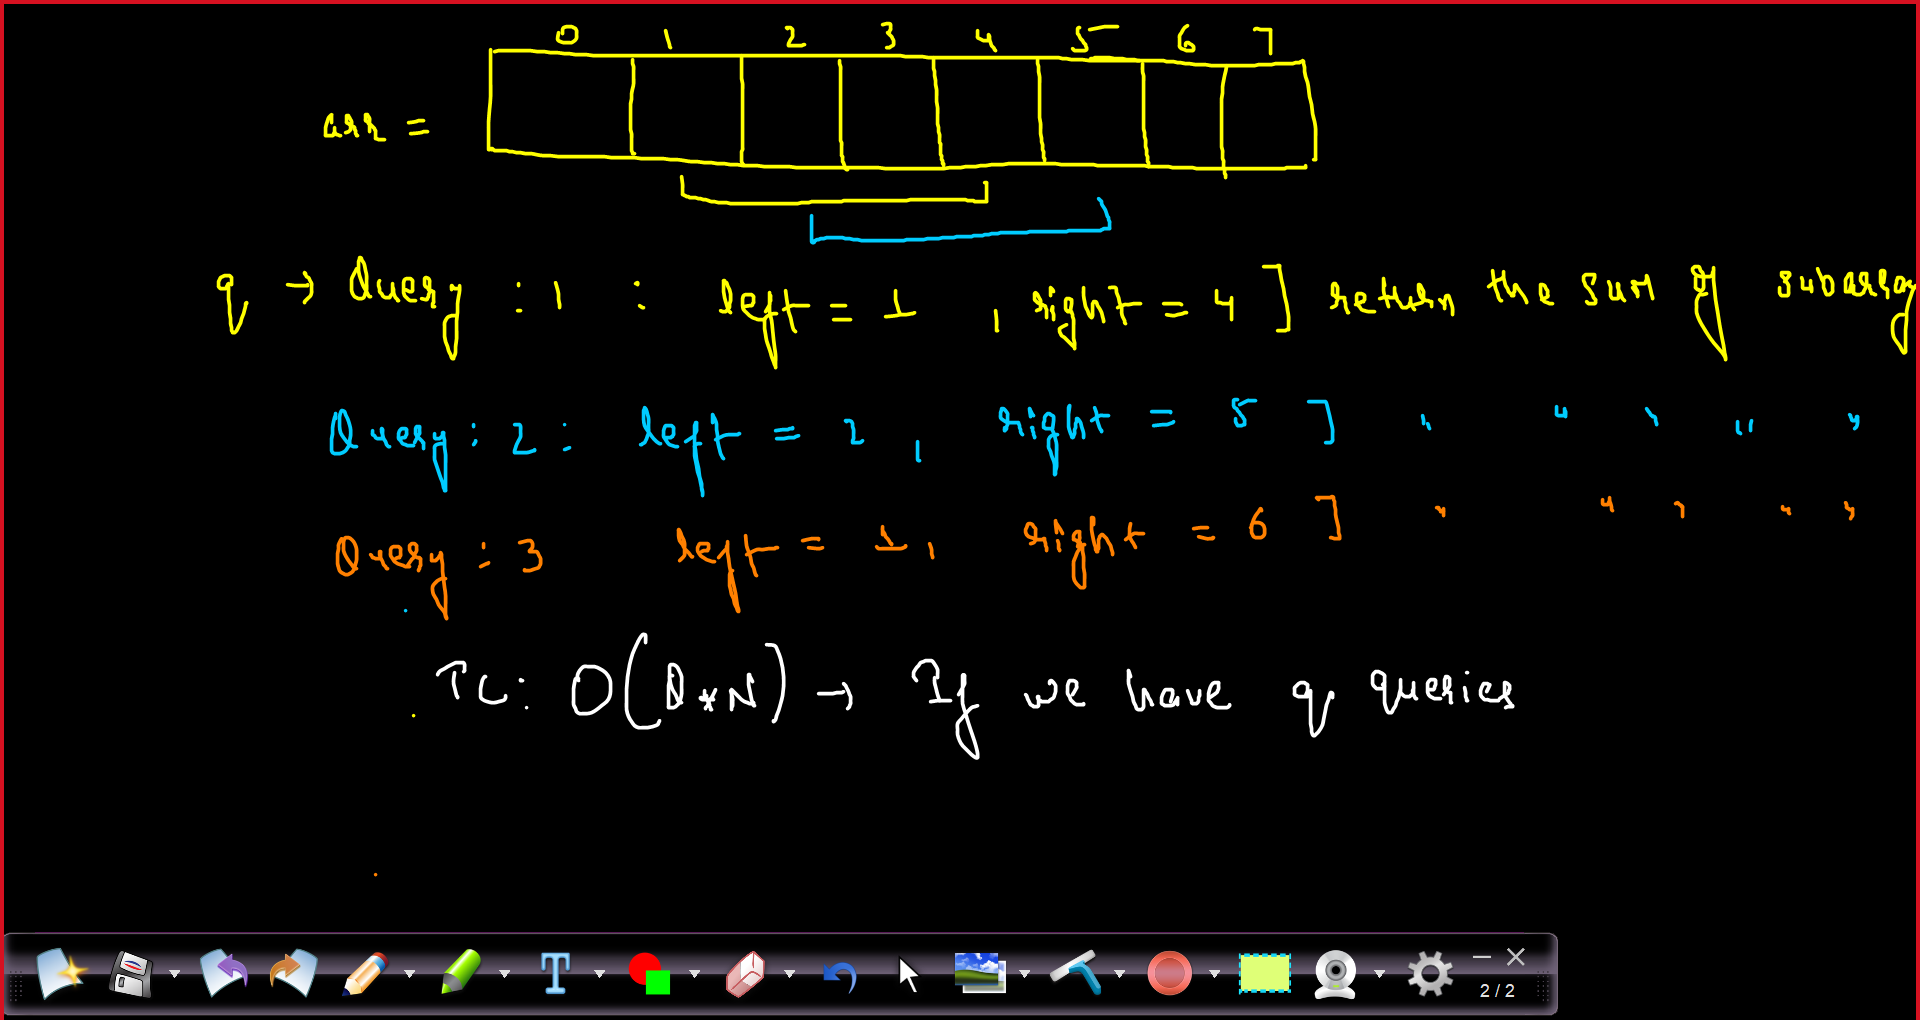 0 1 2 3 4 5 6 7
arr =
q → Query : 1 : left = 1 , right = 4 ] return the sum of subarray
Query : 2 : left = 2 , right = 5 ] " " " " "
Query : 3 left = 1 , right = 6 ] " " " " "
TC : O(Q*N) → If we have q queries
T
2 / 2